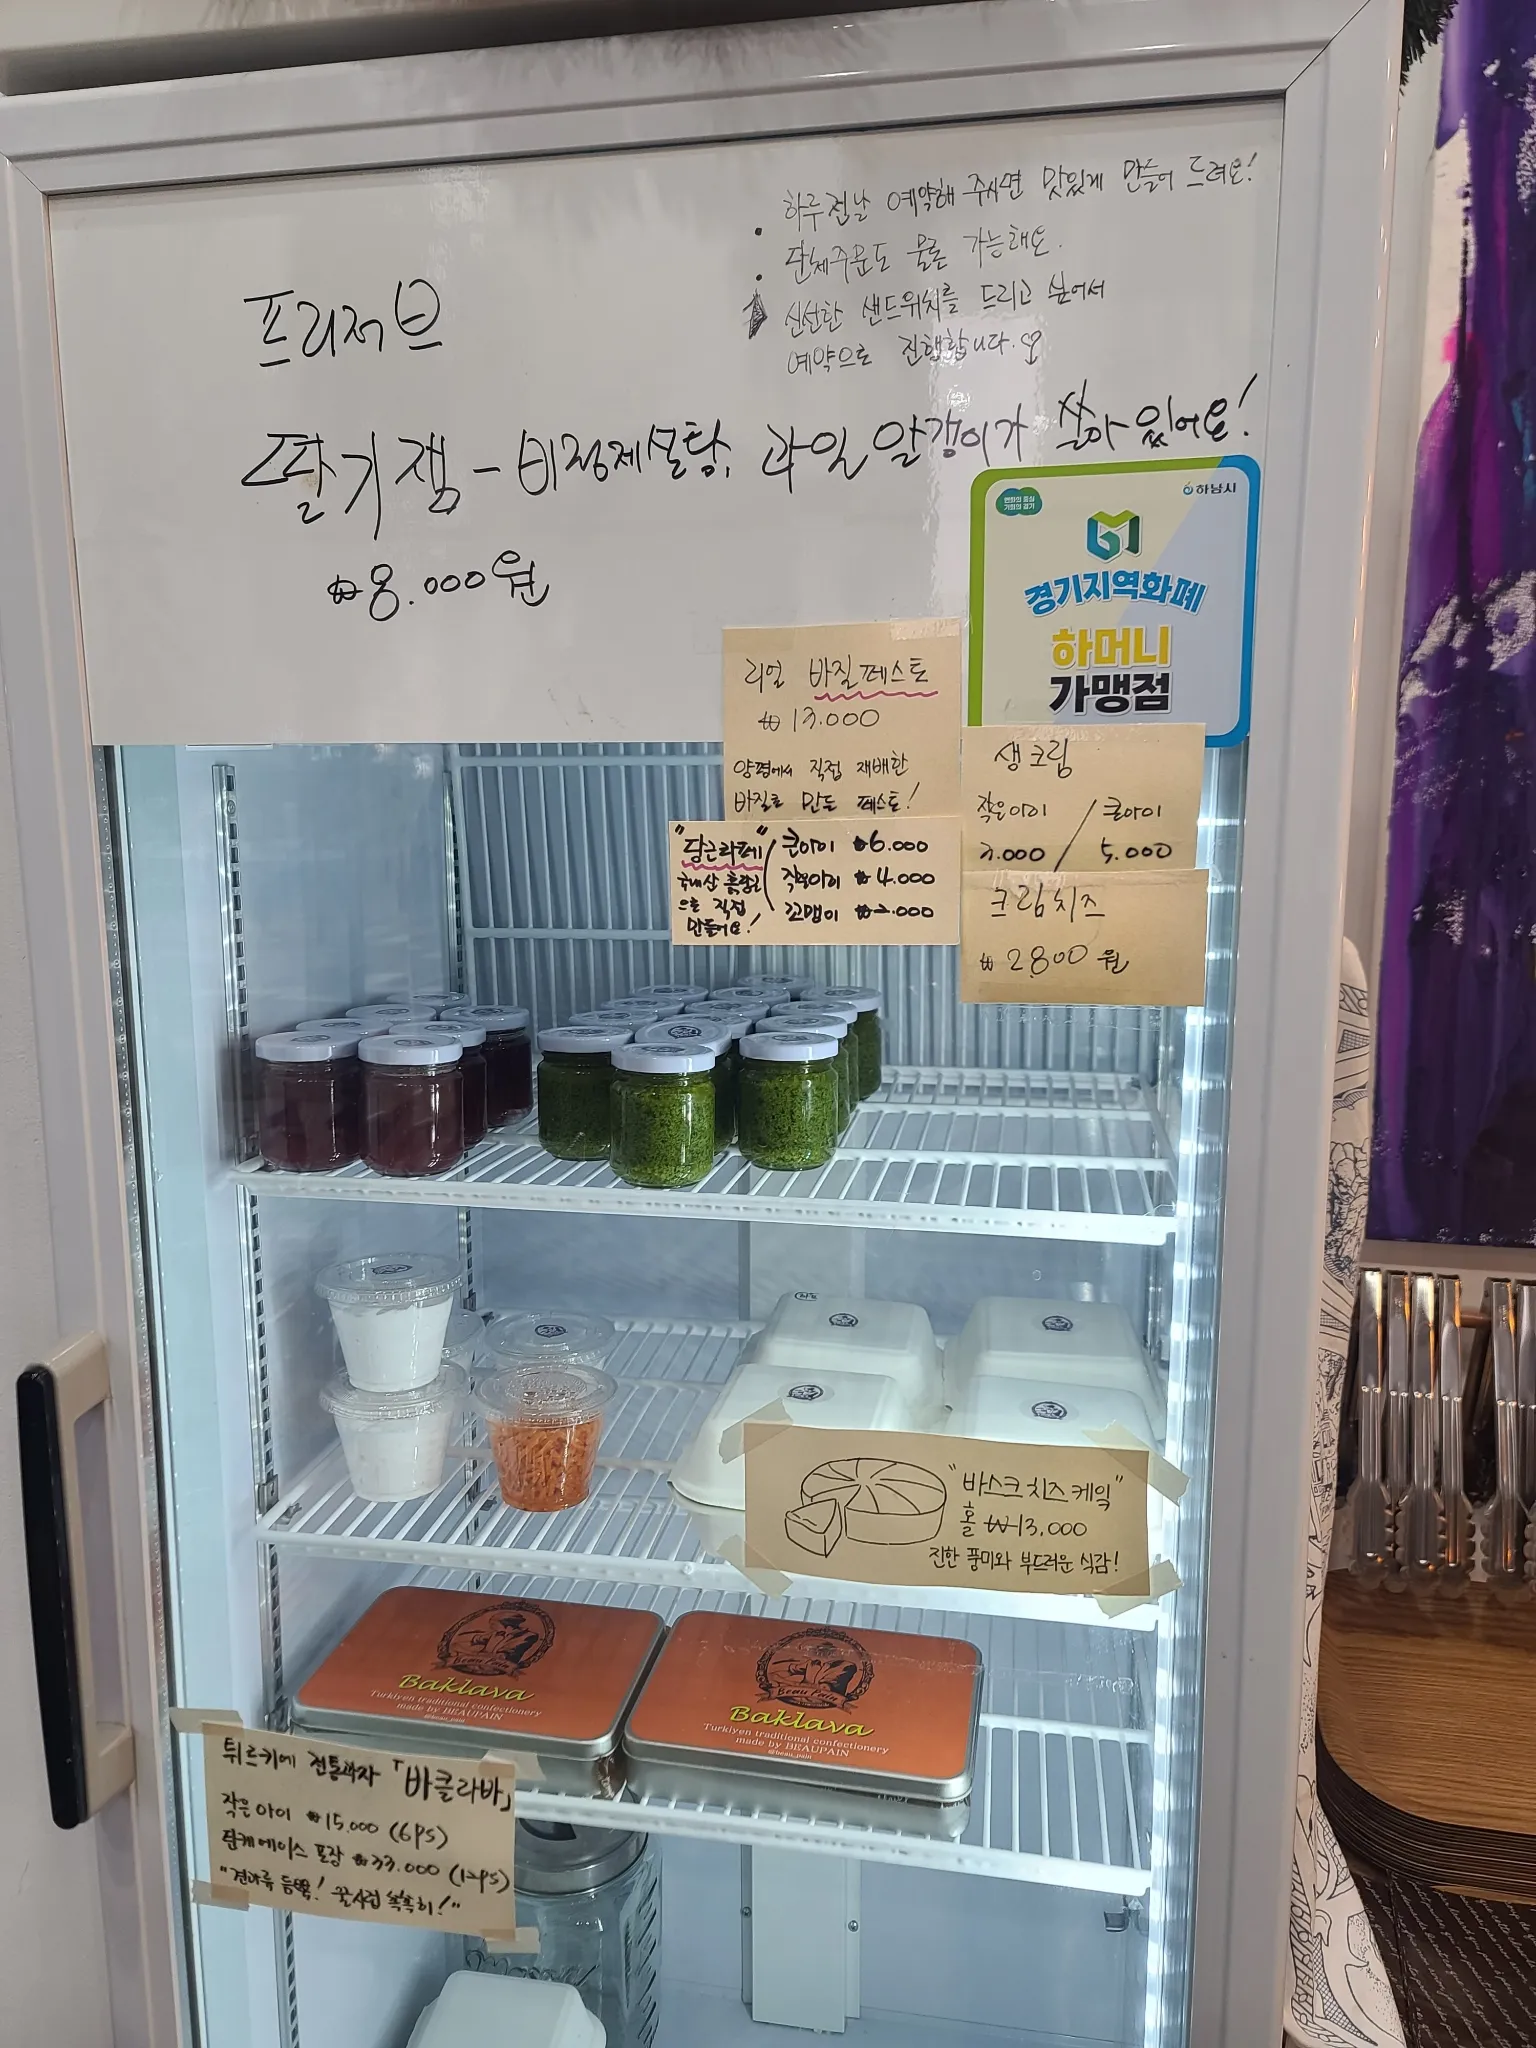 하루 전날 예약해 주시면 맛있게 만들어 드려요!
단체주문도 물론 가능해요.
신선한 샌드위치를 드리고 싶어서
예약으로 진행합니다.♡
프리저브
딸기잼 - 비정제설탕, 과일 알갱이가 살아 있어요!
₩8.000원
변화의 중심
기회의 경기
하남시
경기지역화폐
하머니
가맹점
리얼 바질페스토
₩13.000
양평에서 직접 재배한
바질로 만든 페스토!
"당근라페"
국내산 흙당근
으로 직접
만들어요!
큰아이 ₩6.000
작은아이 ₩4.000
꼬맹이 ₩2.000
생크림
작은아이 / 큰아이
3.000 / 5.000
크림치즈
₩2.800원
"바스크 치즈 케잌"
홀 ₩13,000
진한 풍미와 부드러운 식감!
Beau Pain
Baklava
Turkiyen traditional confectionery
made by BEAUPAIN
@beau_pain
Beau Pain
Baklava
Turkiyen traditional confectionery
made by BEAUPAIN
@beau_pain
튀르키예 전통과자 「바클라바」
작은아이 ₩15.000 (6ps)
틴케이스 포장 ₩33.000 (12ps)
"견과류 듬뿍! 꿀시럽 촉촉히!"